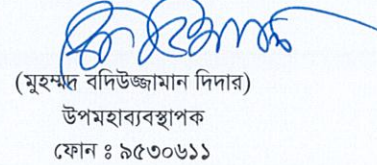 (মুহম্মদ বদিউজ্জামান দিদার)
উপমহাব্যবস্থাপক
ফোন ঃ ৯৫৩০৬১১